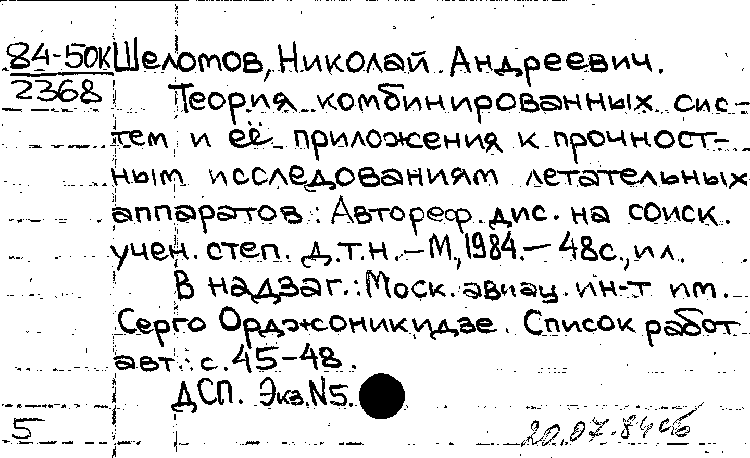 84-50К Шеломов, Николай Андреевич.
2368 Теория комбинированных сис-
тем и её приложения к прочност-
ным исследованиям летательных
аппаратов: Автореф. дис. на соиск.
учен. степ. д.т.н. - М., 1984. - 48с., ил.
В надзаг.: Моск. авиац. ин-т им.
Серго Орджоникидзе. Список работ
авт.: с. 45-48.
ДСП. Экз. N5.
5
20.07.84